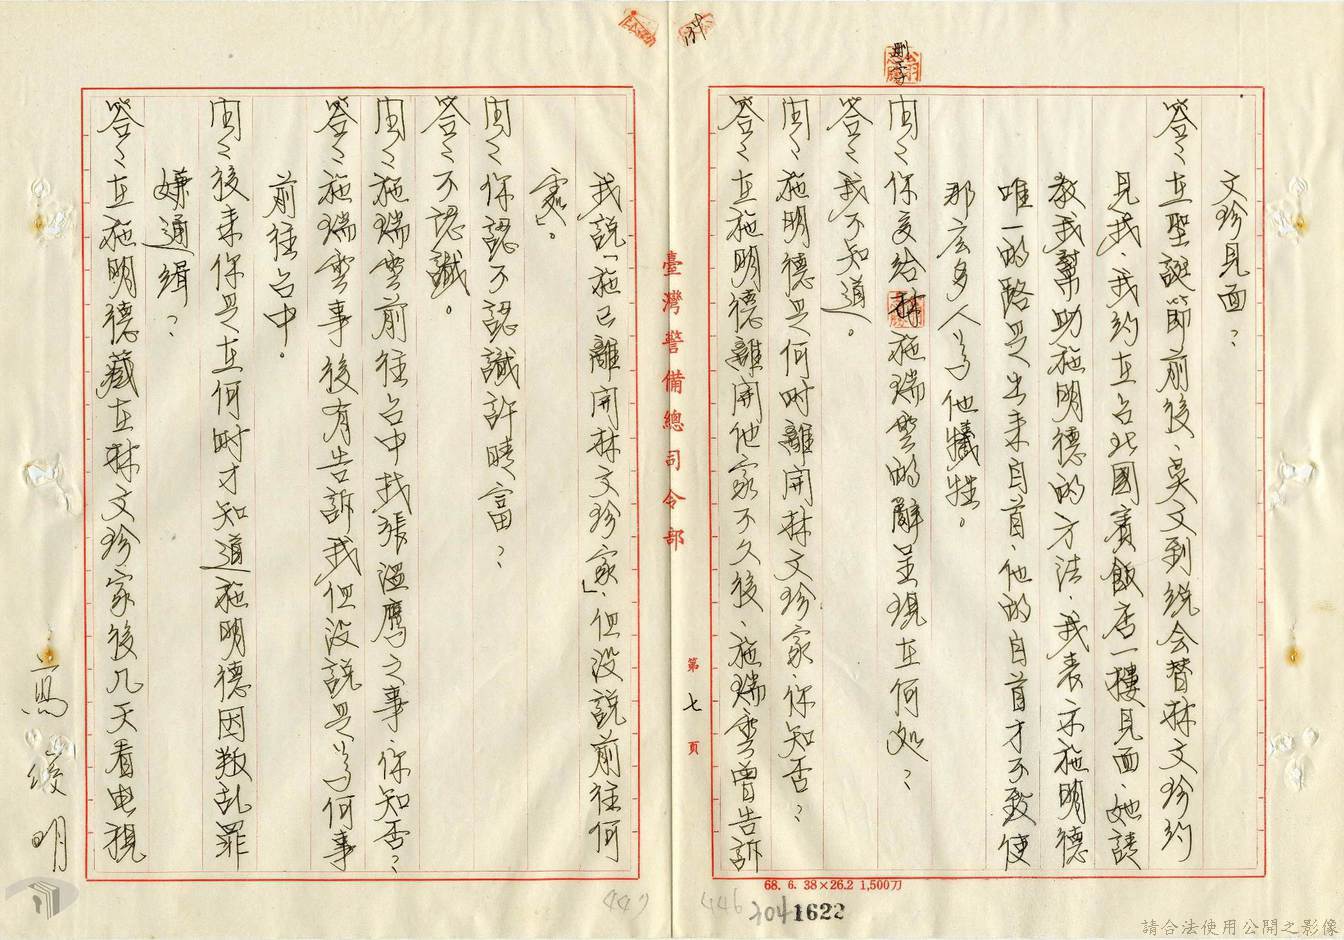 文珍見面？
答：在聖誕節前後，吳文到統會替林文珍約
見我，我約在台北國賓飯店一樓見面，她請
教我幫助施明德的方法，我表示施明德
唯一的路是出來自首，他的自首才不致使
那么多人為他犧牲。
刪一字
問：你交給林施瑞雲的辭呈現在何処？
答：我不知道。
問：施明德是何时離開林文珍家，你知否？
答：在施明德離開他家不久後，施瑞雲曾告訴
臺灣警備總司令部
第七頁
我說「施已離開林文珍家」，但没説前往何
處」。
問：你認不認識許晴富？
答：不認識。
問：施瑞雲前往台中找張温鷹之事，你知否？
答：施瑞雲事後有告訴我但没説是為何事
前往台中。
問：後来你是在何时才知道施明德因叛乱罪
嫌通緝？
答：在施明德藏在林文珍家後几天看电視
68. 6. 38×26.2 1,500刀
446
447
2041622
請合法使用公開之影像